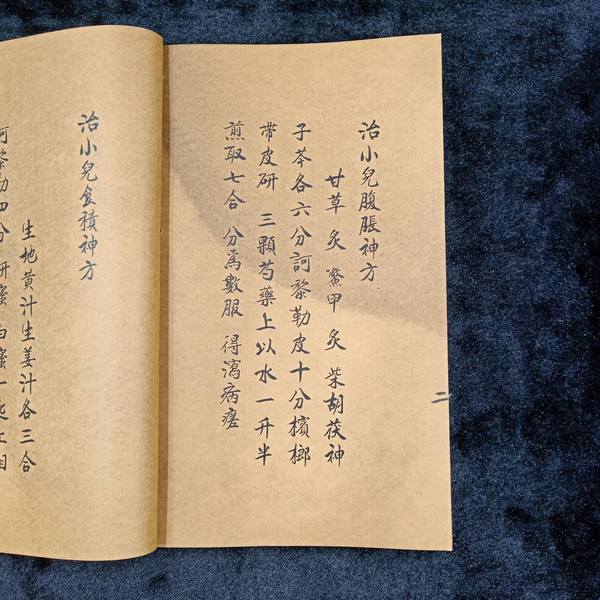 治小兒腹脹神方
甘草炙 鱉甲炙 柴胡茯神
子芩各六分訶黎勒皮十分檳榔
帶皮研 三顆芍藥上以水一升半
煎取七合 分爲數服 得瀉病瘥
二
治小兒食積神方
生地黄汁生姜汁各三合
訶黎勒四分 研蜜 白蜜一